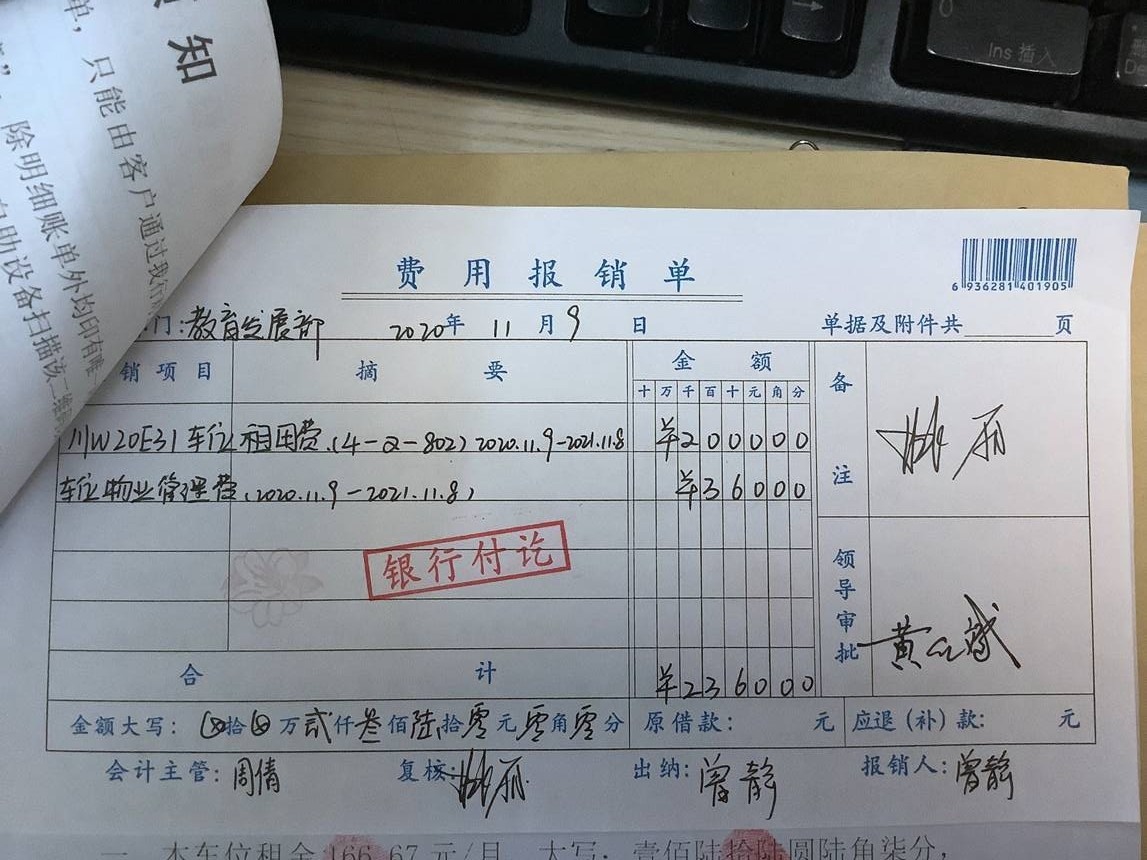 知
单，只能由客户通过我行
除明细账单外均印有唯一
自助设备扫描该二维
Ins 插入
费用报销单
6 936281 401905
门：教育发展部 2020年 11月9日 单据及附件共 页
销项目 摘要 金额 备注
十万千百十元角分
川W20E31车位租用费（4-2-802）2020.11.9-2021.11.8 ¥200000
车位物业管理费（2020.11.9-2021.11.8） ¥36000
银行付讫
领导审批
合计 ¥236000
金额大写：⊗拾⊗万贰仟叁佰陆拾零元零角零分 原借款： 元 应退（补）款： 元
会计主管：周倩 复核： 出纳：曾静 报销人：曾静
一、本车位租金166.67元/月，大写：壹佰陆拾陆圆陆角柒分，